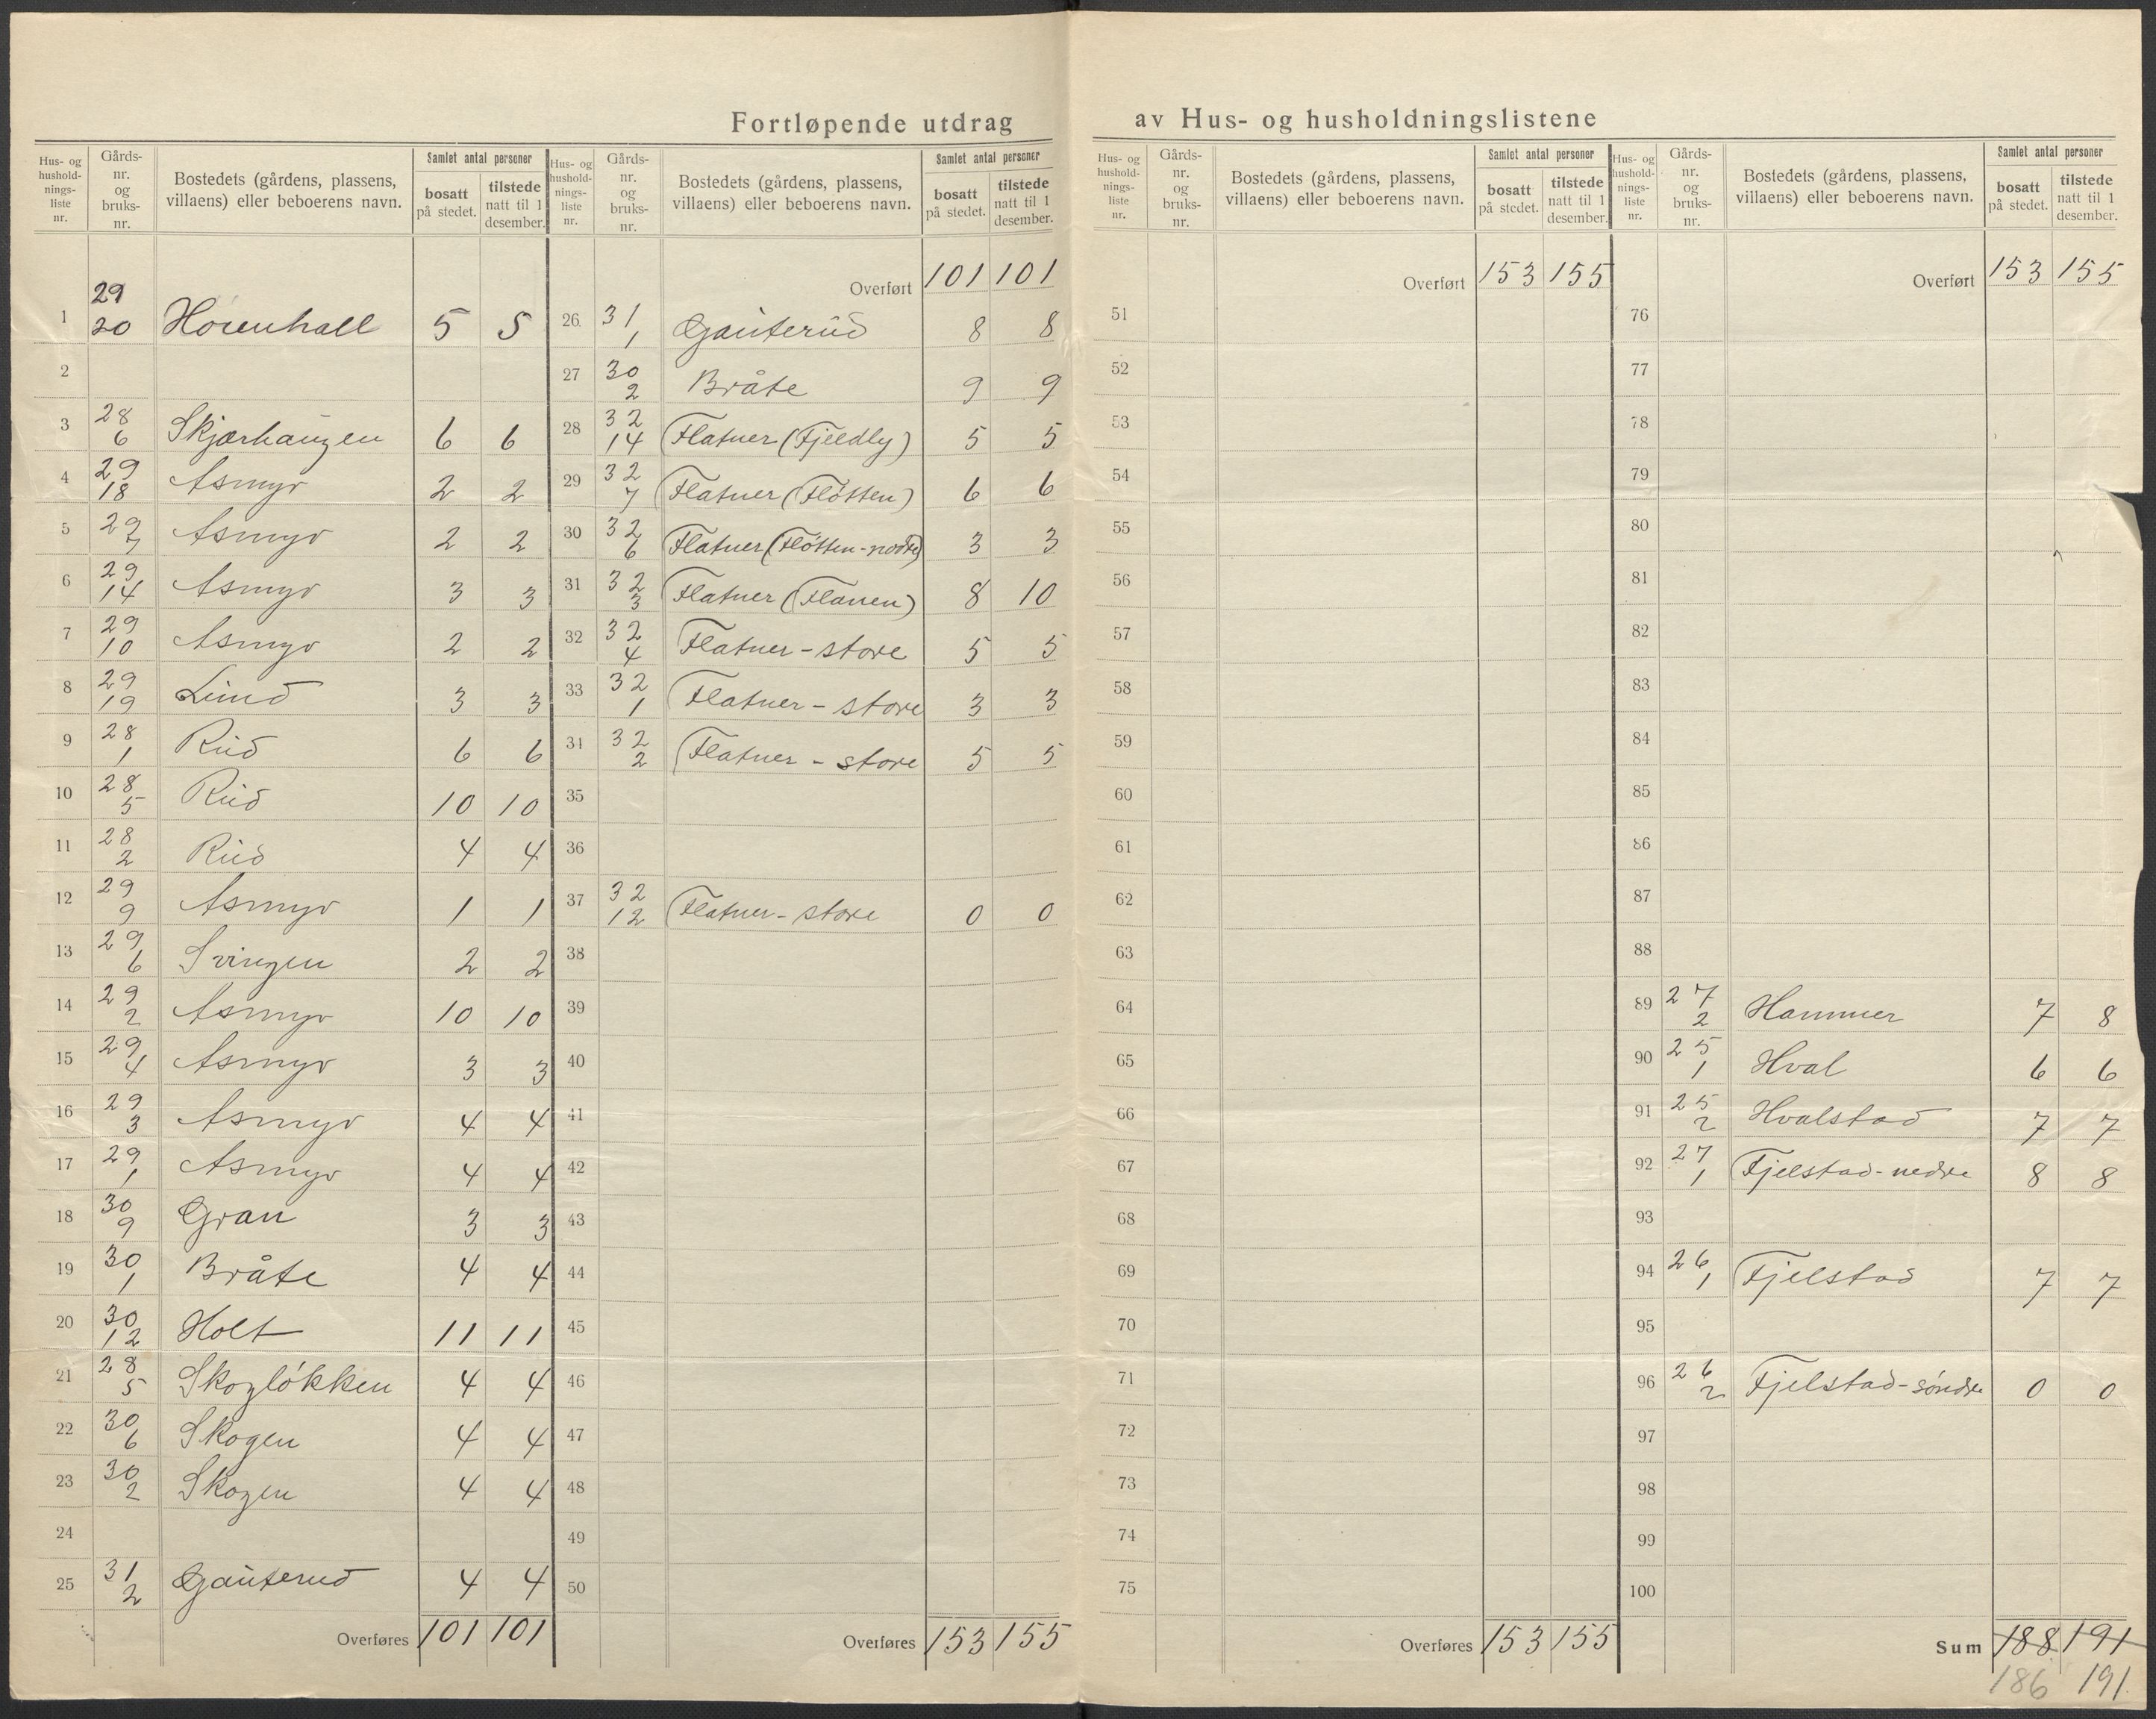 Fortløpende utdrag av Hus- og husholdningslistene
Hus- og hushold-nings-liste nr. | Gårds-nr. og bruks-nr. | Bostedets (gårdens, plassens, villaens) eller beboerens navn. | Samlet antal personer | bosatt på stedet. | tilstede natt til 1 desember.
1 29 20 5 5
2
3 28 6 Skjærhaugen 6 6
4 29 18 Asmyr 2 2
5 29 7 Asmyr 2 2
6 29 14 Asmyr 3 3
7 29 10 Asmyr 2 2
8 29 19 Lund 3 3
9 28 1 Rud 6 6
10 28 5 Rud 10 10
11 28 2 Rud 4 4
12 29 9 Asmyr 1 1
13 29 6 Svingen 2 2
14 29 2 Asmyr 10 10
15 29 4 Asmyr 3 3
16 29 3 Asmyr 4 4
17 29 1 Asmyr 4 4
18 30 9 Gran 3 3
19 30 1 Bråte 4 4
20 30 12 Holt 11 11
21 28 5 Skogløkken 4 4
22 30 6 Skogen 4 4
23 30 2 Skogen 4 4
24
25 31 2 Gauterud 4 4
Overføres 101 101
Hus- og hushold-nings-liste nr. | Gårds-nr. og bruks-nr. | Bostedets (gårdens, plassens, villaens) eller beboerens navn. | Samlet antal personer | bosatt på stedet. | tilstede natt til 1 desember.
Overført 101 101
26 31 1 Gauterud 8 8
27 30 2 Bråte 9 9
28 32 14 Flatner (Fjeldly) 5 5
29 32 7 Flatner (Fløtten) 6 6
30 32 6 Flatner (Fløtten-nordre) 3 3
31 32 3 Flatner 8 10
32 32 4 Flatner - store 5 5
33 32 1 Flatner - store 3 3
34 32 2 Flatner - store 5 5
35
36
37 32 12 Flatner - store 0 0
38
39
40
41
42
43
44
45
46
47
48
49
50
Overføres 153 155
Hus- og hushold-nings-liste nr. | Gårds-nr. og bruks-nr. | Bostedets (gårdens, plassens, villaens) eller beboerens navn. | Samlet antal personer | bosatt på stedet. | tilstede natt til 1 desember.
Overført 153 155
51
52
53
54
55
56
57
58
59
60
61
62
63
64
65
66
67
68
69
70
71
72
73
74
75
Overføres 153 155
Hus- og hushold-nings-liste nr. | Gårds-nr. og bruks-nr. | Bostedets (gårdens, plassens, villaens) eller beboerens navn. | Samlet antal personer | bosatt på stedet. | tilstede natt til 1 desember.
Overført 153 155
76
77
78
79
80
81
82
83
84
85
86
87
88
89 27 2 Hammer 7 8
90 25 1 Hval 6 6
91 25 2 Hvalstad 7 7
92 27 1 Fjelstad-nedre 8 8
93
94 26 1 Fjelstad 7 7
95
96 26 2 Fjelstad-søndre 0 0
97
98
99
100
Sum 188 191
186 191